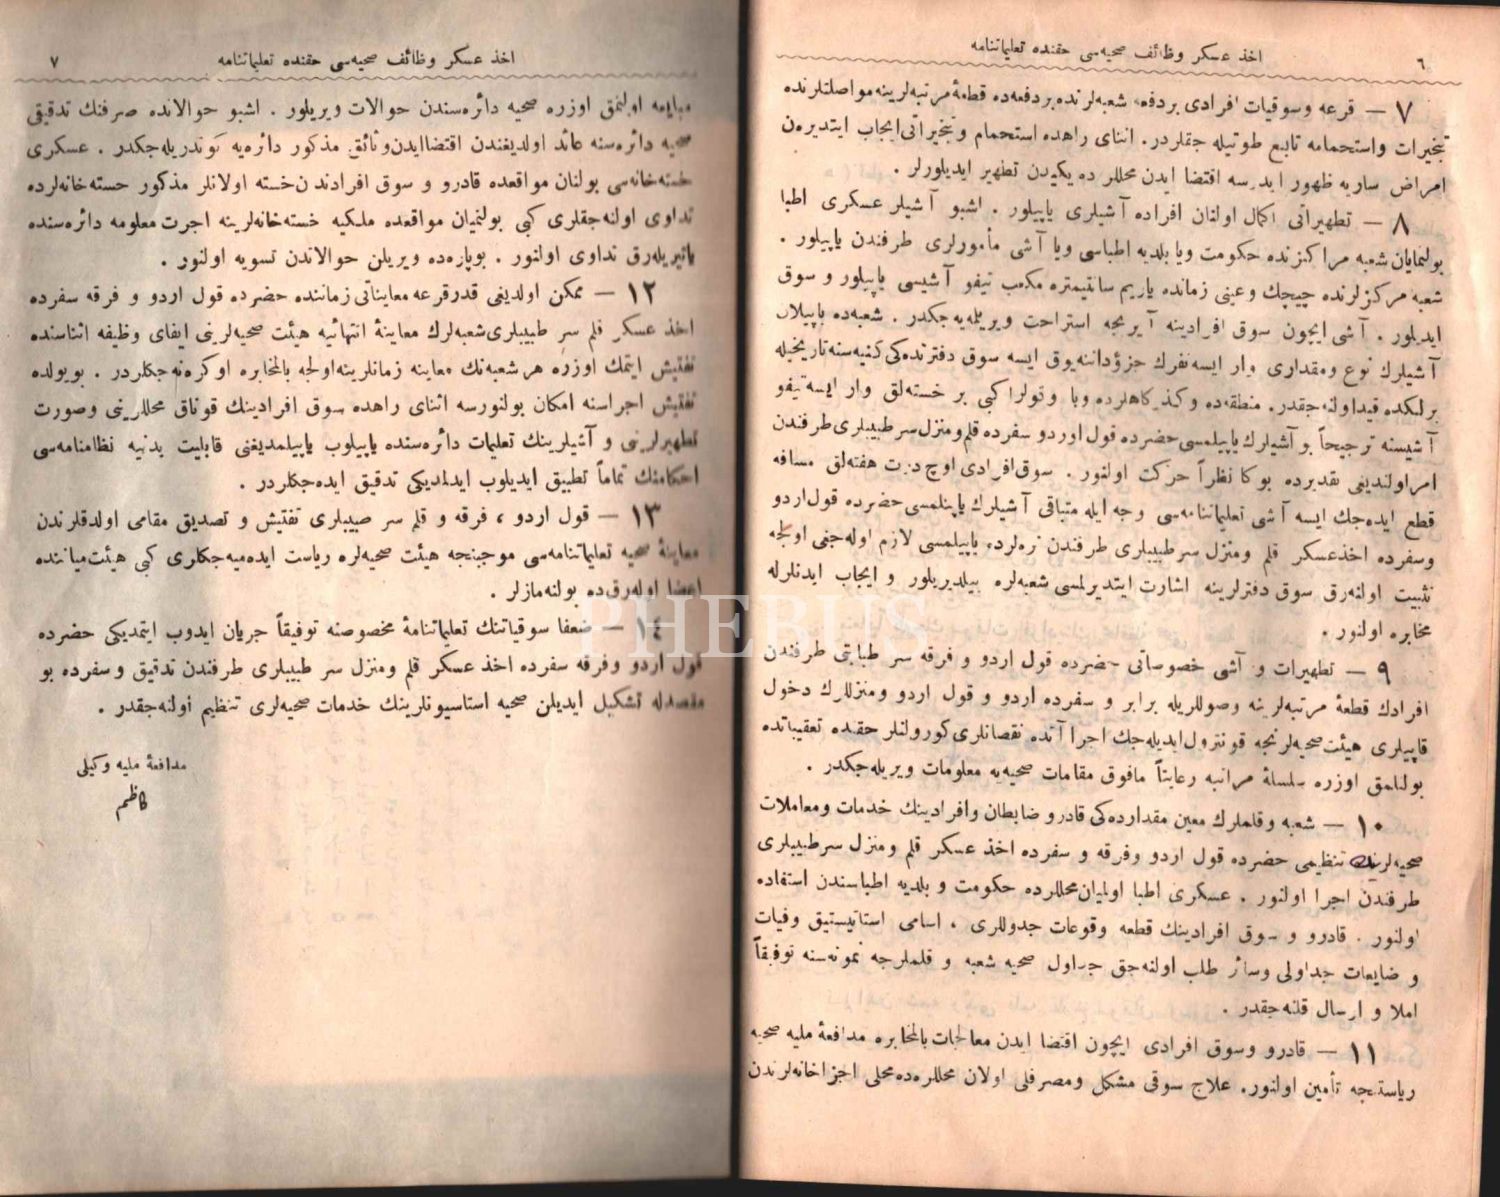 ٦
اخذ عسكر وظائف صحیه‌سی حقنده تعلیماتنامه
٧ — قرعه وسوقیات افرادی بردفه شعبه‌لرنده بردفعه‌ده قطعهٔ مرتبه‌لرینه مواصلتلرنده
تبخیرات واستحمامه تابع طوتیله جقلردر. اثنای راهده استحمام وتبخیراتی ایجاب ایتدیره‌ن
امراض ساریه ظهور ایدرسه اقتضا ایدن محللر ده یكیدن تطهیر ایدیلورلر .
٨ — تطهیراتی اكمال اولنان افراده آشیلری یاپیلور . اشبو آشیلر عسكری اطبا
بولنمایان شعبه مراكزنده حكومت ویا بلدیه اطباسی ویا آشی مأمورلری طرفندن یاپیلور .
شعبه مركزلرنده چیچك وعینی زمانده یاریم سانتیمتره مكعب تیفو آشیسی یاپیلور و سوق
ایدیلور . آشی ایچون سوق افرادینه آیریجه استراحت ویریلمه‌یه جكدر . شعبه‌ده یاپیلان
آشیلرك نوع ومقداری وار ایسه نفرك جزؤداننه‌یوق ایسه سوق دفترنده‌كی كنیه‌سنه تاریخیله
برلكده قیداولنه جقدر. منطقه‌ده و كذركاهلرده وبا وقولرا كبی بر خسته‌لق وار ایسه‌تیفو
آشیسنه ترجیحاً بو آشیلرك یاپیلمسی حضرده قول اوردو سفرده قلم‌ومنزل سرطبیبلری طرفندن
امراولندیغی تقدیرده بوكا نظراً حركت اولنور . سوق‌افرادی اوچ درت هفته‌لق مسافه
قطع ایده‌جك ایسه آشی تعلیماتنامه‌سی وجه ایله متباقی آشیلرك یاپیلمسی حضرده قول‌اردو
وسفرده اخذعسكر قلم ومنزل سرطبیبلری طرفندن نره‌لرده یاپیلمسی لازم اوله‌جغی اولجه
تثبیت اولنه‌رق سوق دفترلرینه اشارت ایتدیرلمسی شعبه‌لره بیلدیریلور و ایجاب ایدنلرله
مخابره اولنور .
٩ — تطهیرات و آشی خصوصاتی حضرده قول اردو و فرقه سر طبابتی طرفندن
افرادك قطعهٔ مرتبه‌لرینه وصوللریله برابر و سفرده اردو و قول اردو ومنزللرك دخول
قاپیلری هیئت‌صحیه‌لرنجه قونترول‌ایدیله‌جك اجراآتده نقصانلری‌كورولنلر حقنده تعقیباتده
بولنلمق اوزره سلسلهٔ مراتبه رعایتاً مافوق مقامات صحیه‌یه معلومات ویریله‌جكدر .
١٠ — شعبه وقلملرك معین مقدارده‌كی قادرو ضابطان وافرادینك خدمات ومعاملات
صحیه‌لرینك تنظیمی حضرده قول اردو وفرقه و سفرده اخذ عسكر قلم ومنزل سرطبیبلری
طرفندن اجرا اولنور . عسكری اطبا اولمیان‌محللرده حكومت و بلدیه اطباسندن استفاده
اولنور . قادرو و سوق افرادینك قطعه وقوعات جدوللری ، اسامی استاتیستیق وفیات
و ضایعات جداولی وسائر طلب اولنه‌جق جداول صحیه شعبه و قلملرجه نمونه‌سنه توفیقاً
املا و ارسال قلنه‌جقدر .
١١ — قادرو وسوق افرادی ایچون اقتضا ایدن معالجات بالمخابره مدافعهٔ ملیه صحیه
ریاستنجه تأمین اولنور. علاج سوقی مشكل ومصرفلی اولان محللرده‌محلی اجزاخانه‌لرندن
اخذ عسكر وظائف صحیه‌سی حقنده تعلیماتنامه
٧
مبایعه اولنمق اوزره صحیه دائره‌سندن حوالات ویریلور . اشبو حوالانده صرفنك تدقیقی
صحیه دائره‌سنه عائد اولدیغندن اقتضاایدن‌وثائق مذكور دائره‌یه كوندریله‌جكدر . عسكری
خسته‌خانه‌سی بولنان مواقعده قادرو و سوق افرادندن‌خسته اولانلر مذكور خسته‌خانه‌لرده
تداوی اولنه‌جقلری كبی بولنمیان مواقعده ملكیه خسته‌خانه‌لرینه اجرت معلومه دائره‌سنده
یاتیریله‌رق تداوی اولنور . بوپاره‌ده ویریلن حوالاتدن تسویه اولنور .
١٢ — ممكن اولدیغی قدرقرعه معایناتی زماننده حضرده قول اردو و فرقه سفرده
اخذ عسكر قلم سر طبیبلری‌شعبه‌لرك معاینهٔ انتهائیه هیئت صحیه‌لرینی ایفای وظیفه اثناسنده
تفتیش ایتمك اوزره هرشعبه‌نك معاینه زمانلرینه‌اولجه بالمخابره اوكره‌نه‌جكلردر . بویولده
تفتیش اجراسنه امكان بولنورسه اثنای راهده سوق افرادینك قوناق محللرینی وصورت
تطهیرلرینی و آشیلرینك تعلیمات دائره‌سنده یاپیلوب یاپیلمدیغنی قابلیت بدنیه نظامنامه‌سی
احكامنك تماماً تطبیق ایدیلوب ایدلمدیكی تدقیق ایده‌جكلردر .
١٣ — قول اردو ، فرقه و قلم سر طبیبلری تفتیش و تصدیق مقامی اولدقلرندن
معاینهٔ صحیه تعلیماتنامه‌سی موجبنجه هیئت صحیه‌لره ریاست ایده‌میه‌جكلری كبی هیئت‌میاننده
اعضا اوله‌رق‌ده بولنه‌مازلر .
١٤ — ضعفا سوقیاتنك تعلیماتنامهٔ مخصوصنه توفیقاً جریان ایدوب ایتمدیكی حضرده
قول اردو وفرقه سفرده اخذ عسكر قلم ومنزل سر طبیبلری طرفندن تدقیق وسفرده بو
مقصدله تشكیل ایدیلن صحیه استاسیونلرینك خدمات صحیه‌لری تنظیم اولنه‌جقدر .
مدافعهٔ ملیه وكیلی
كاظم
PHEBUS